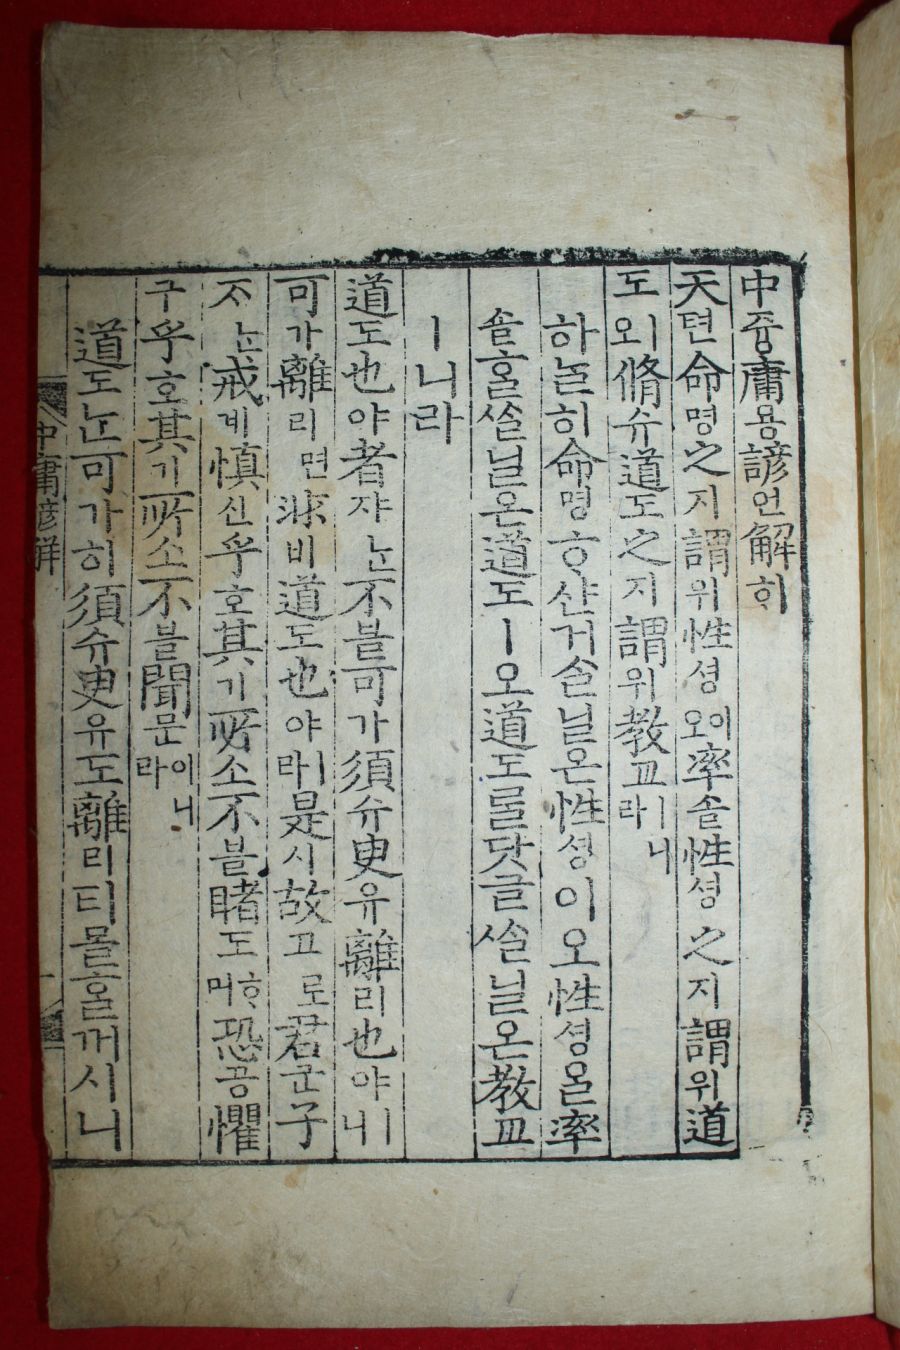 中듕庸용諺언解ᄒᆡ
天텬命명之지謂위性셩이오率솔性셩之지謂위道
도ㅣ오脩슈道도之지謂위敎교ㅣ라니
하ᄂᆞᆯ히命명ᄒᆞ샨거ᄉᆞᆯ닐온性셩이오性셩을率
솔홀ᄊᆞᆯ닐온道도ㅣ오道도ᄅᆞᆯ닷글ᄊᆞᆯ닐온敎교
ㅣ니라
道도也야者쟈ᄂᆞᆫ不블可가須슈臾유離리也야ㅣ니
可가離리면非비道도也야ㅣ라是시故고로君군子
ᄌᆞᄂᆞᆫ戒계愼신乎호其기所소不블睹도ᄒᆞ며恐공懼
구乎호其기所소不블聞문이니라
道도ᄂᆞᆫ可가히須슈臾유도離리티몯홀꺼시니
中庸諺解